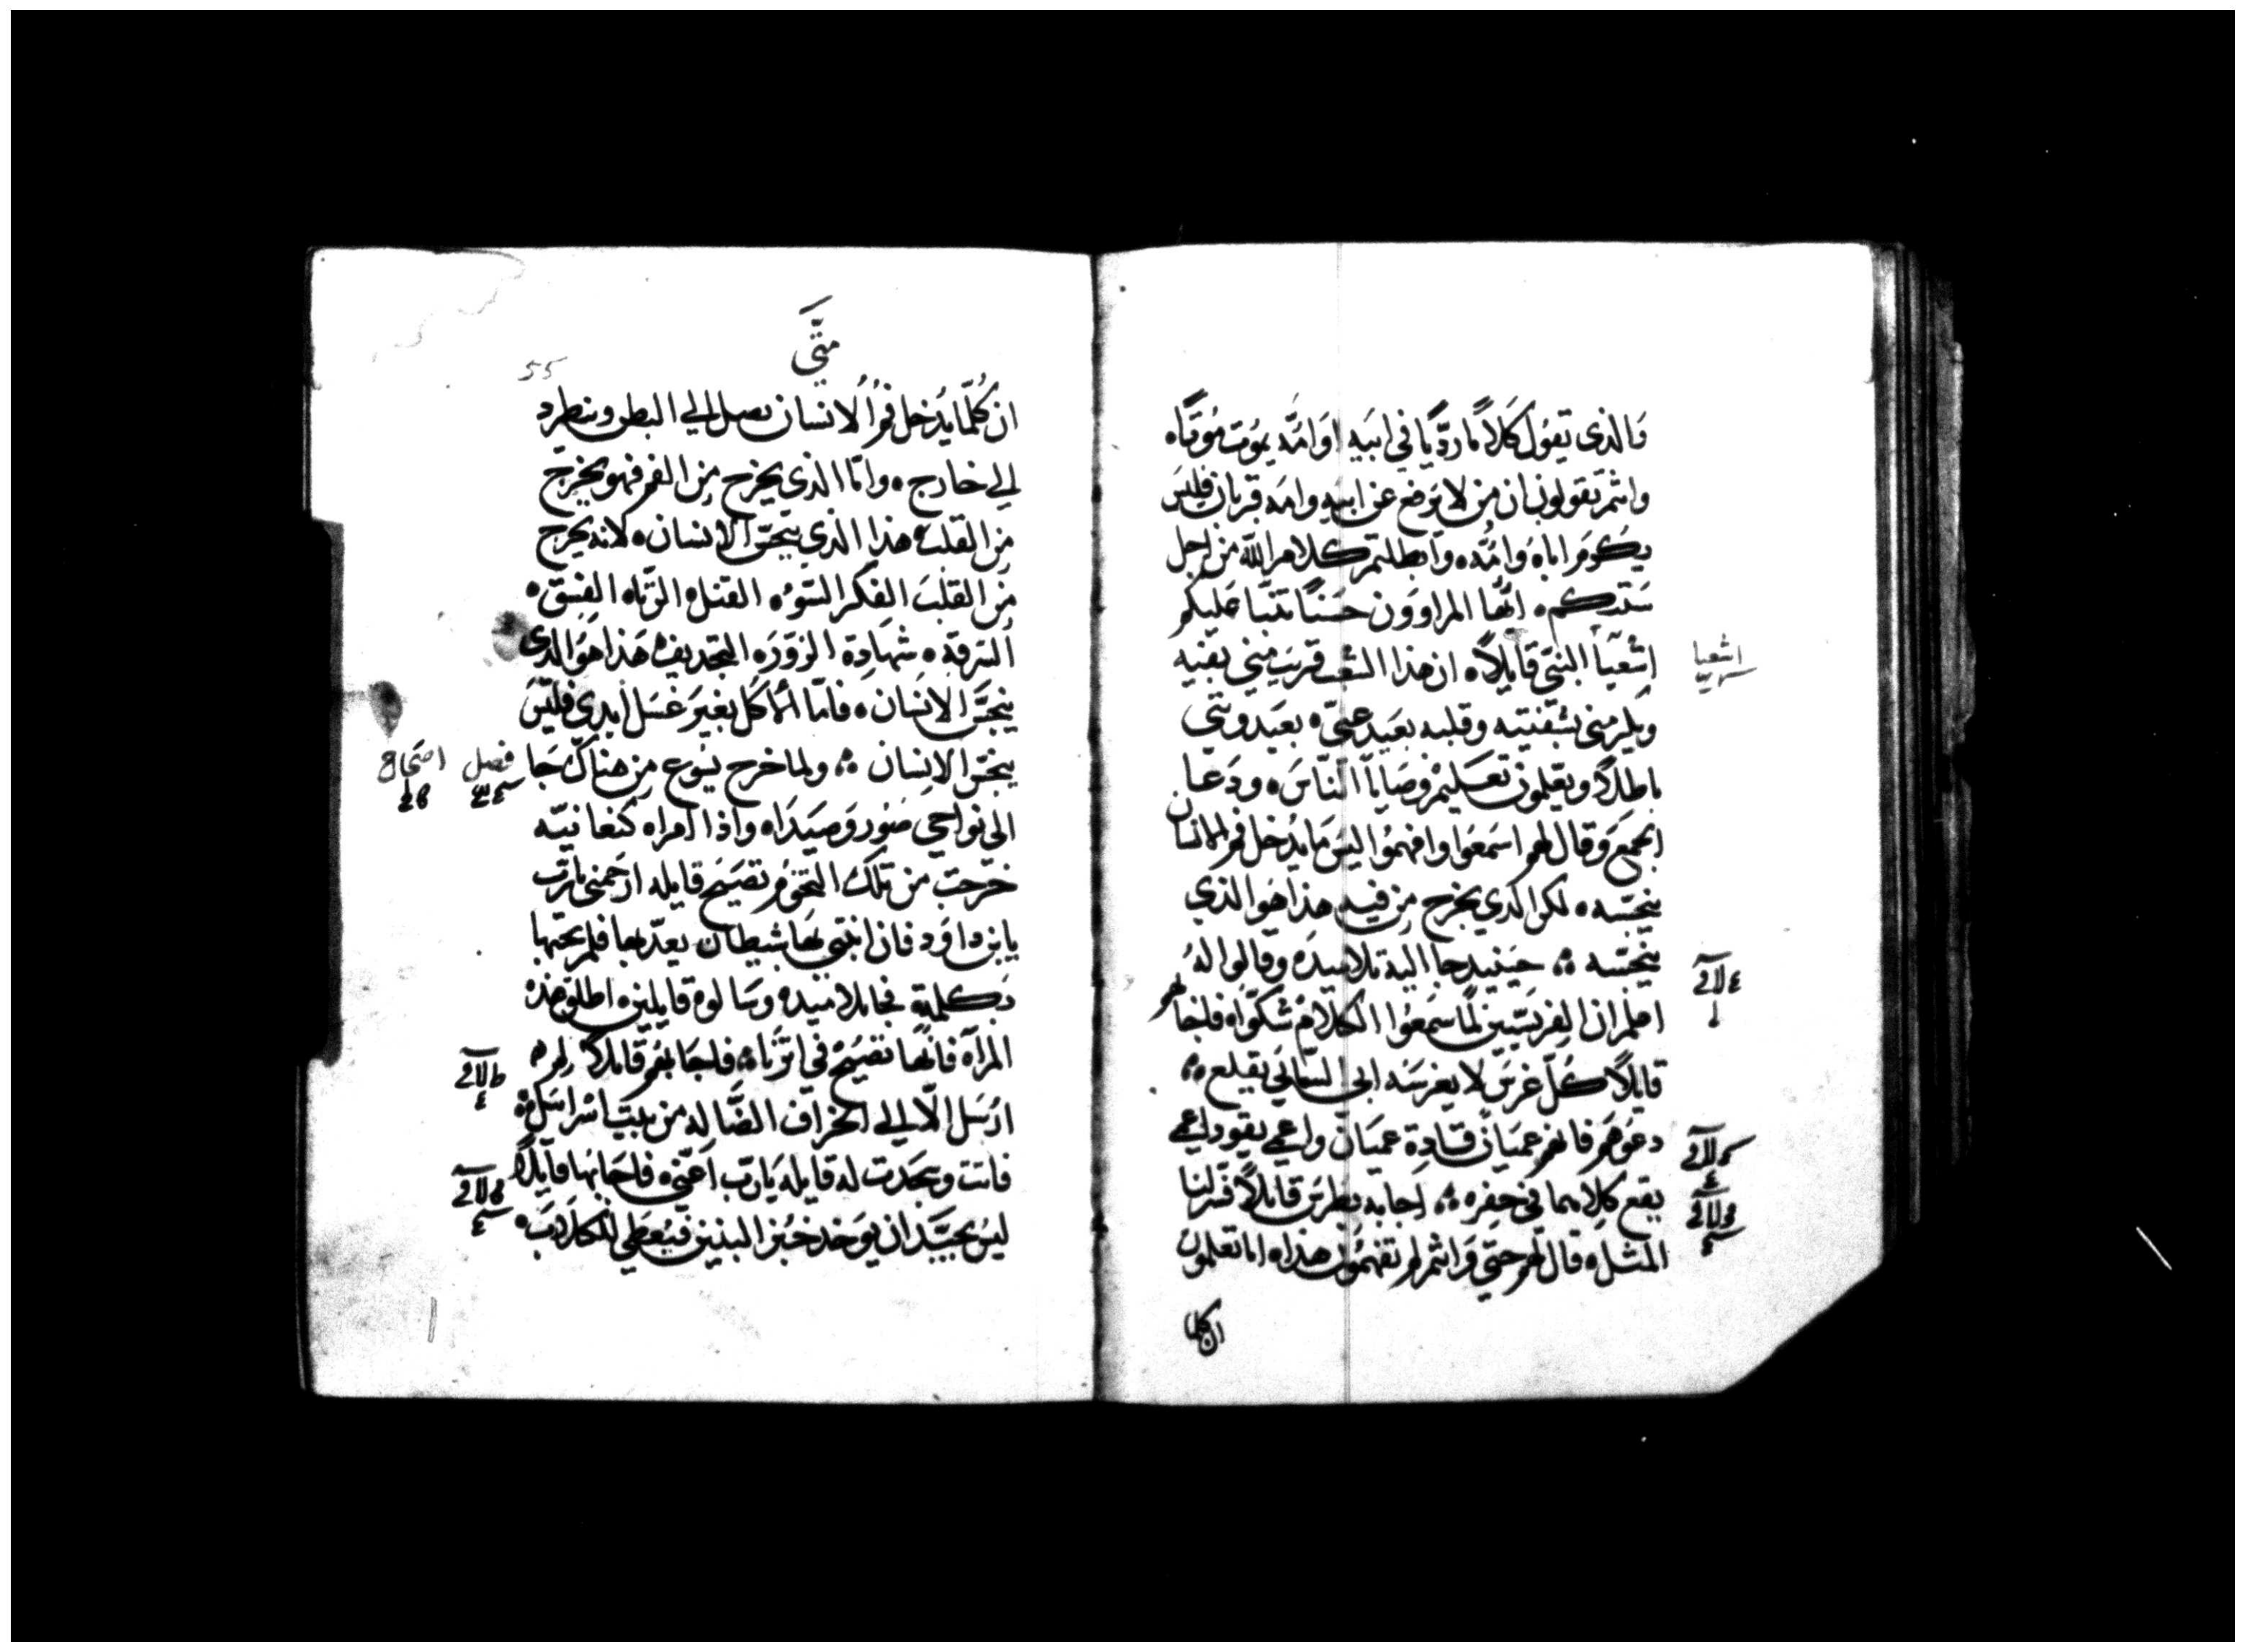 والذي يقول كلامًا رديًا في ابيه او امه يموت موتًا
وانتم تقولون ان من لا يرضع عن ابيه وامه قربان فليس
يكرم اباه وامه وابطلتم كلام الله من اجل
سنتكم ايها المراوون حسنًا تنبا عليكم
اشعيا النبي قايلًا ان هذا الشعب قريب مني بفيه
ويكرمني بشفتيه وقلبه بعيد عني بعيدوني
باطلًا ويعلمون تعليم وصايا الناس ودعا
الجمع وقال لهم اسمعوا وافهموا ليس ما يدخل فم الانسان
ينجسه لكن الذي يخرج من فيه هذا هو الذي
ينجسه حينيد جا اليه تلاميده وقالوا له
اعلم ان الفريسيين لما سمعوا الكلام شكوا فاجابهم
قايلًا كل غرس لا يغرسه ابي السمائي يقلع
دعوهم فانهم عميان قادة عميان واعمى يقود اعمى
يقع كلاهما في حفره اجابه بطرس قايلًا فسر لنا
المثل قال لهم حتى وانتم لم تفهمون هذا اما تعلمون
ان كلما
اشعيا
متى
55
ان كلما يدخل فم الانسان يصل الي البطن وينطرد
الي خارج واما الذي يخرج من الفم فهو يخرج
من القلب هذا الذي ينجس الانسان لانه يخرج
من القلب الفكر السوء القتل الزنا الفسق
السرقة شهادة الزور التجديف هذا هو الذي
ينجس الانسان فاما الماكل بغير غسل ايدي فليس
ينجس الانسان ولما خرج يسوع من هناك جا
الى نواحي صور وصيدا واذا امراه كنعانيه
خرجت من تلك التخوم تصيح قايله ارحمني يا رب
يا بن داوود فان ابنتي بها شيطان يعدبها فلم يجبها
بكلمة فجا تلاميده وسالوه قايلين اطلق هذه
المراة فانها تصيح في اثرنا فاجابهم قايلًا لم
ارسل الا الي الخراف الضاله من بيت اسراييل
فاتت وسجدت له قايله يا رب اعني فاجابها قايلًا
ليس بجيد ان يوخد خبز البنين فيعطي للكلاب
فصل
اصحاح